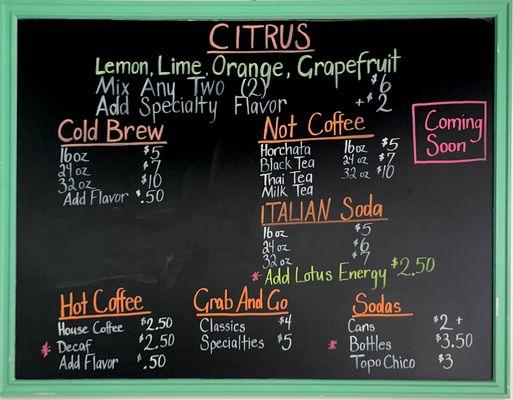 CITRUS
Lemon, Lime, Orange, Grapefruit
Mix Any Two (2) $6
Add Specialty Flavor +$2
Cold Brew
16oz $5
24oz $7
32oz $10
Add Flavor $.50
Not Coffee
Horchata 16oz $5
Black Tea 24oz $7
Thai Tea 32oz $10
Milk Tea
Coming
Soon
ITALIAN Soda
16oz $5
24oz $6
32oz $7
* Add Lotus Energy $2.50
Hot Coffee
House Coffee $2.50
* Decaf $2.50
Add Flavor $.50
Grab And Go
Classics $4
Specialties $5
Sodas
Cans $2+
* Bottles $3.50
Topo Chico $3